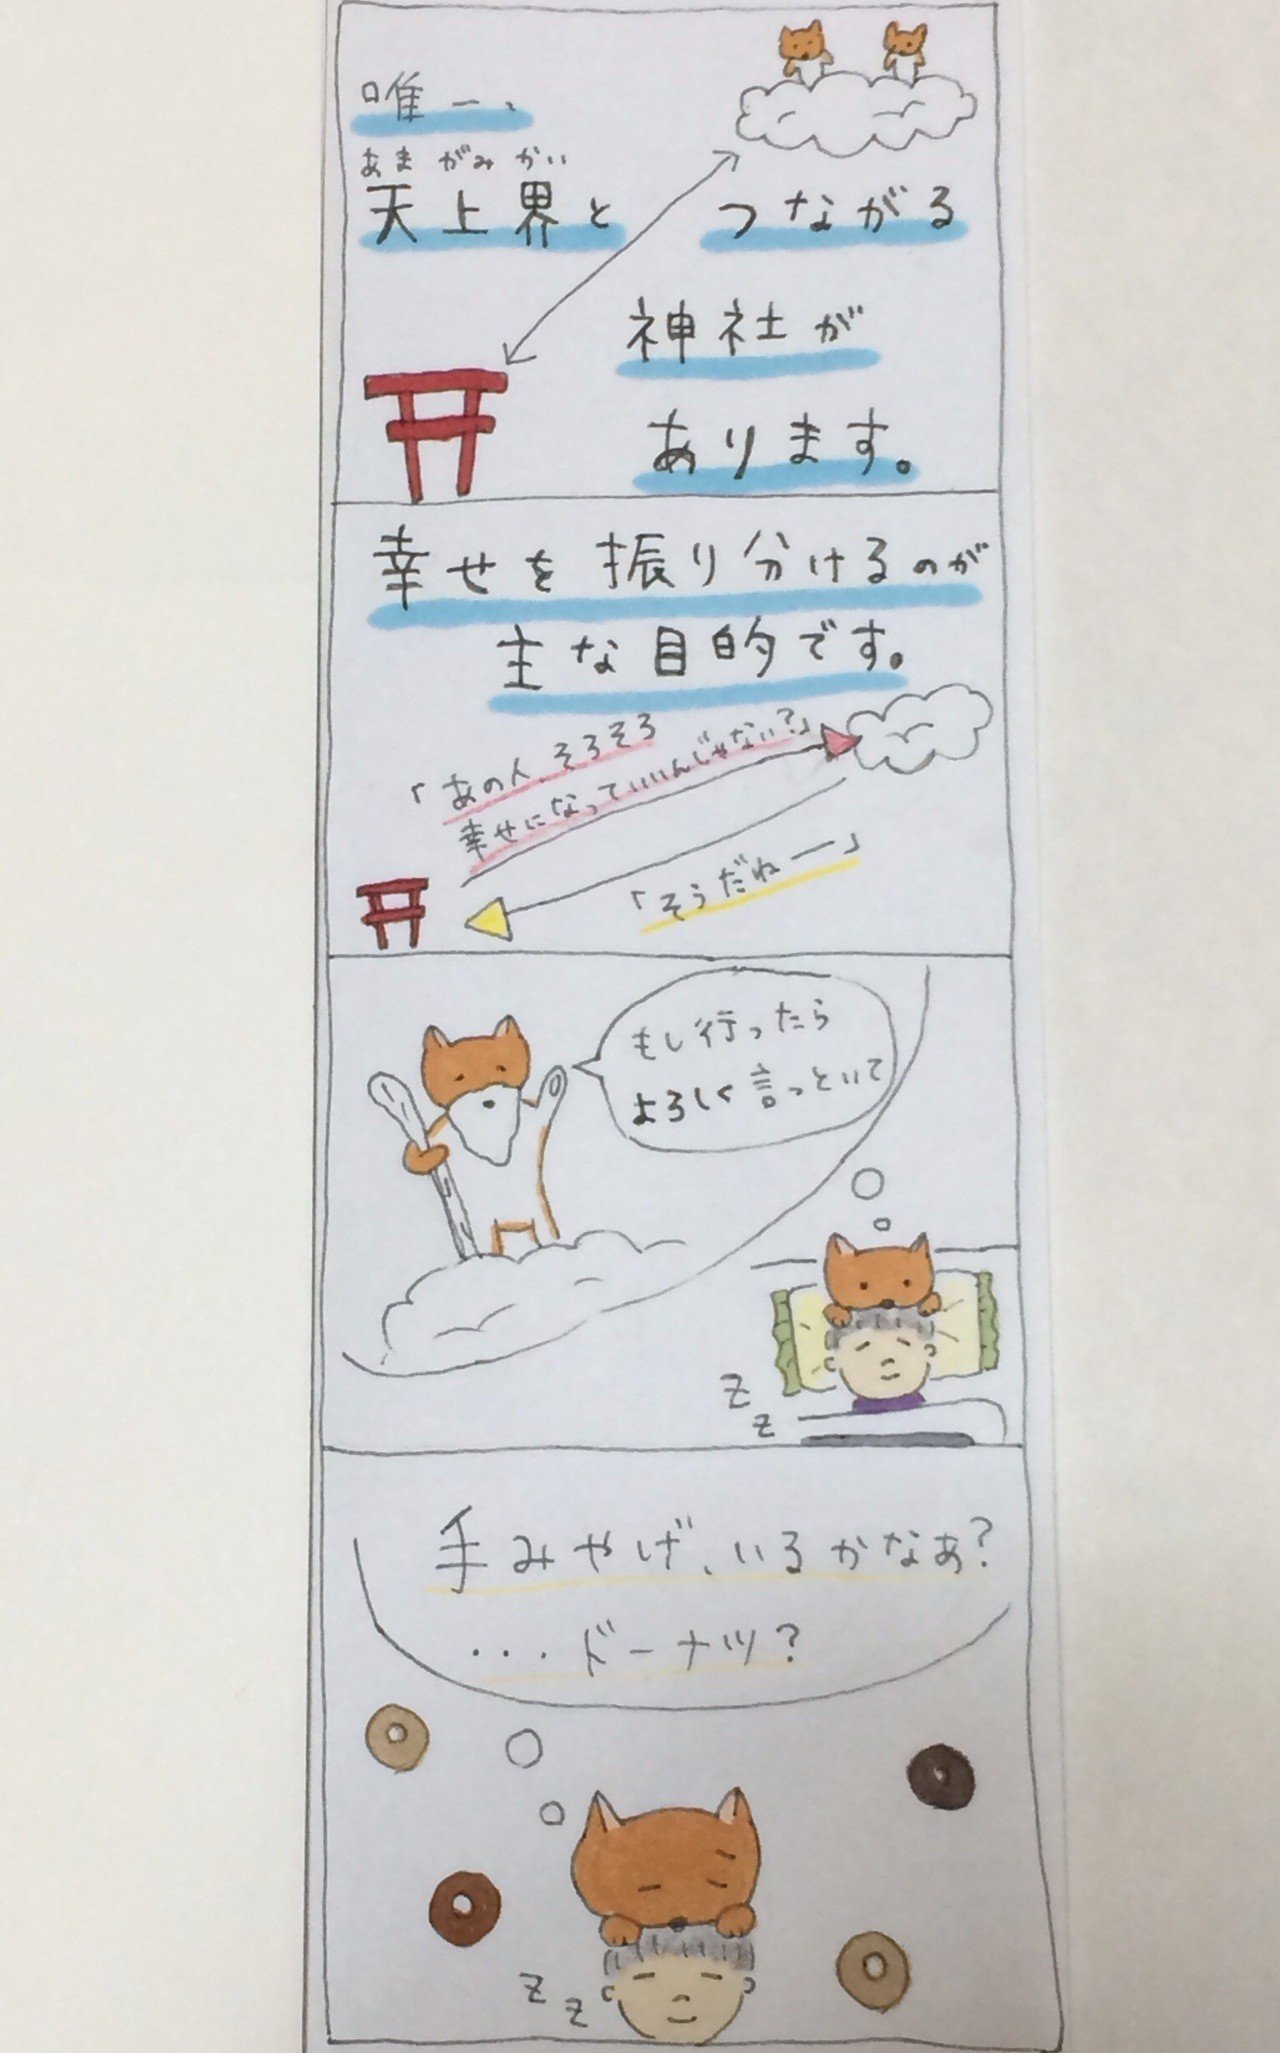 唯一、
あまがみかい
天上界と つながる
神社が
あります。
幸せを振り分けるのが
主な目的です。
「あの人、そろそろ
幸せになっていいんじゃない?」
「そうだねー」
もし行ったら
よろしく言っといて
z
z
手みやげ、いるかなあ?
...ドーナツ?
z z